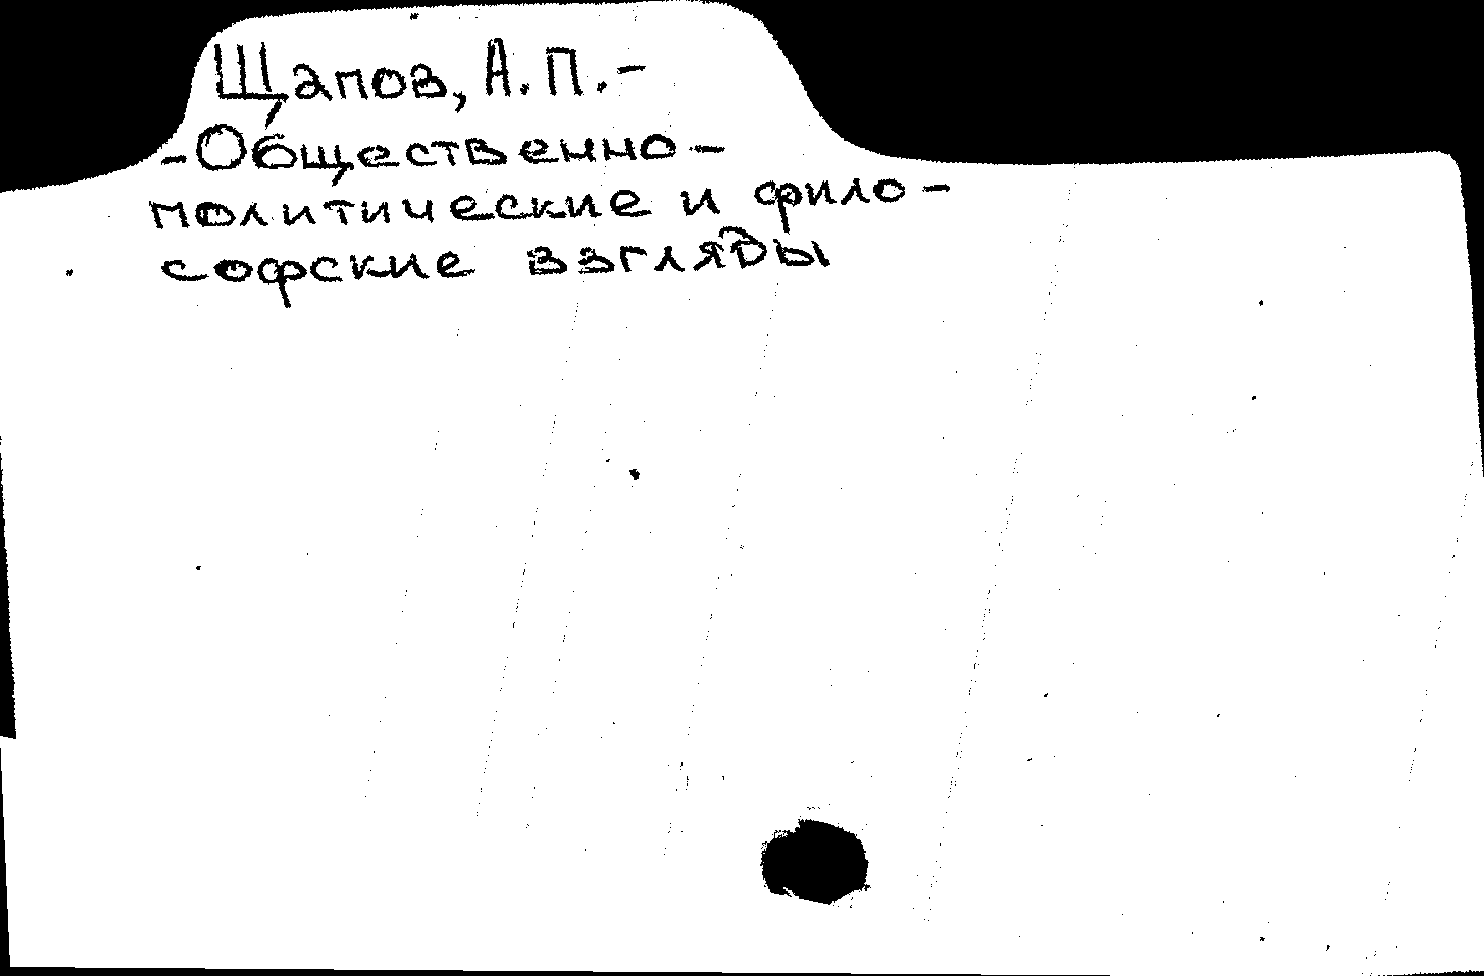 Щапов, А.П.-
-Общественно-
политические и фило-
софские взгляды